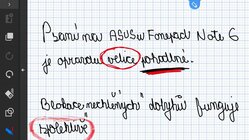 Psaní na ASUSu Fonepad Note 6
je opravdu velice pohodlné.
Blokace nechtěných dotyků funguje